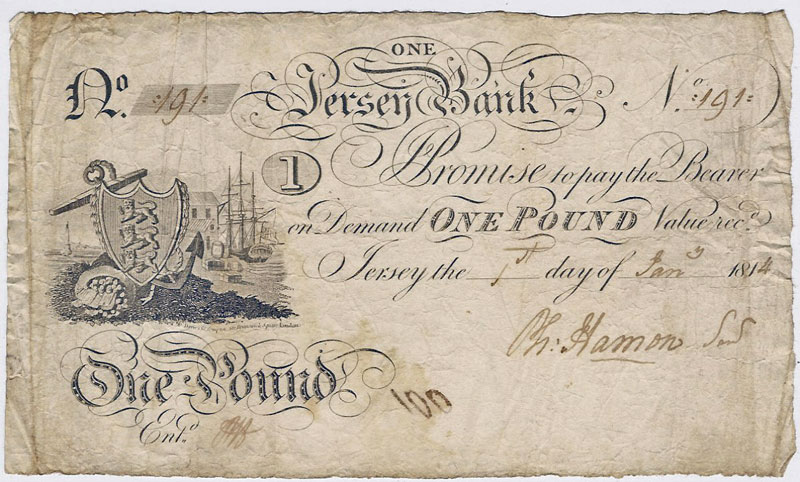 ONE
No. :191: Jersey Bank No. :191:
1 I Promise to pay the Bearer
on Demand ONE POUND Value rec.d
Jersey the 1st day of Jan.y 1814
Ph: Hamon
One Pound
100
Ent.d